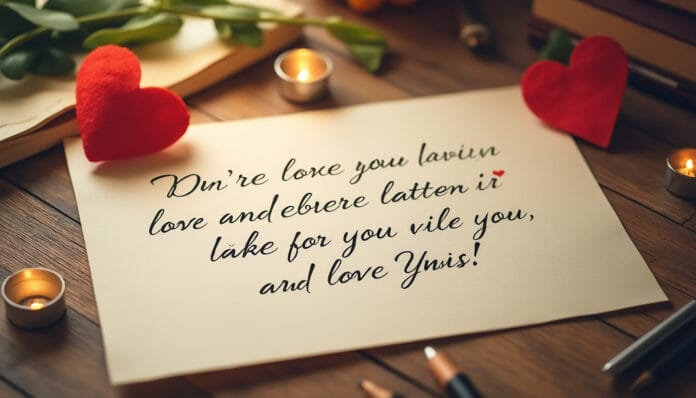 Dın're loxe you lavırn
love and ebere latten ir
lăke for you vile you,
and love Ynıis!